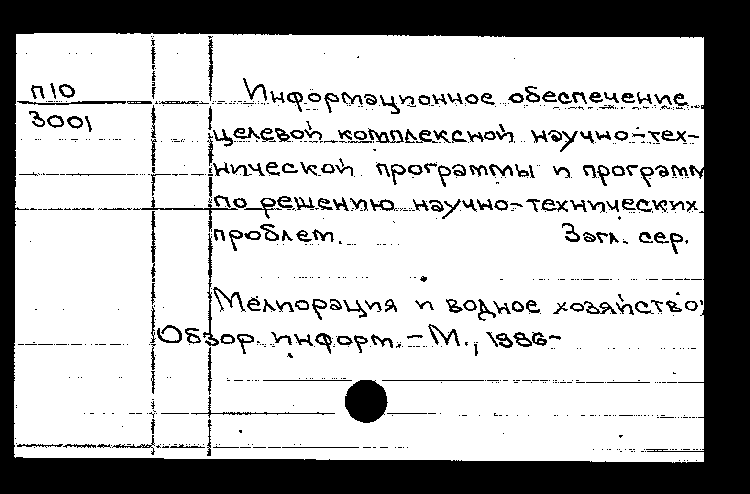 П10
3001
Информационное обеспечение
целевой комплексной научно-тех-
нической программы и программ
по решению научно-технических
проблем. Загл. сер.
Мелиорация и водное хозяйство:
Обзор. информ. - М., 1986-